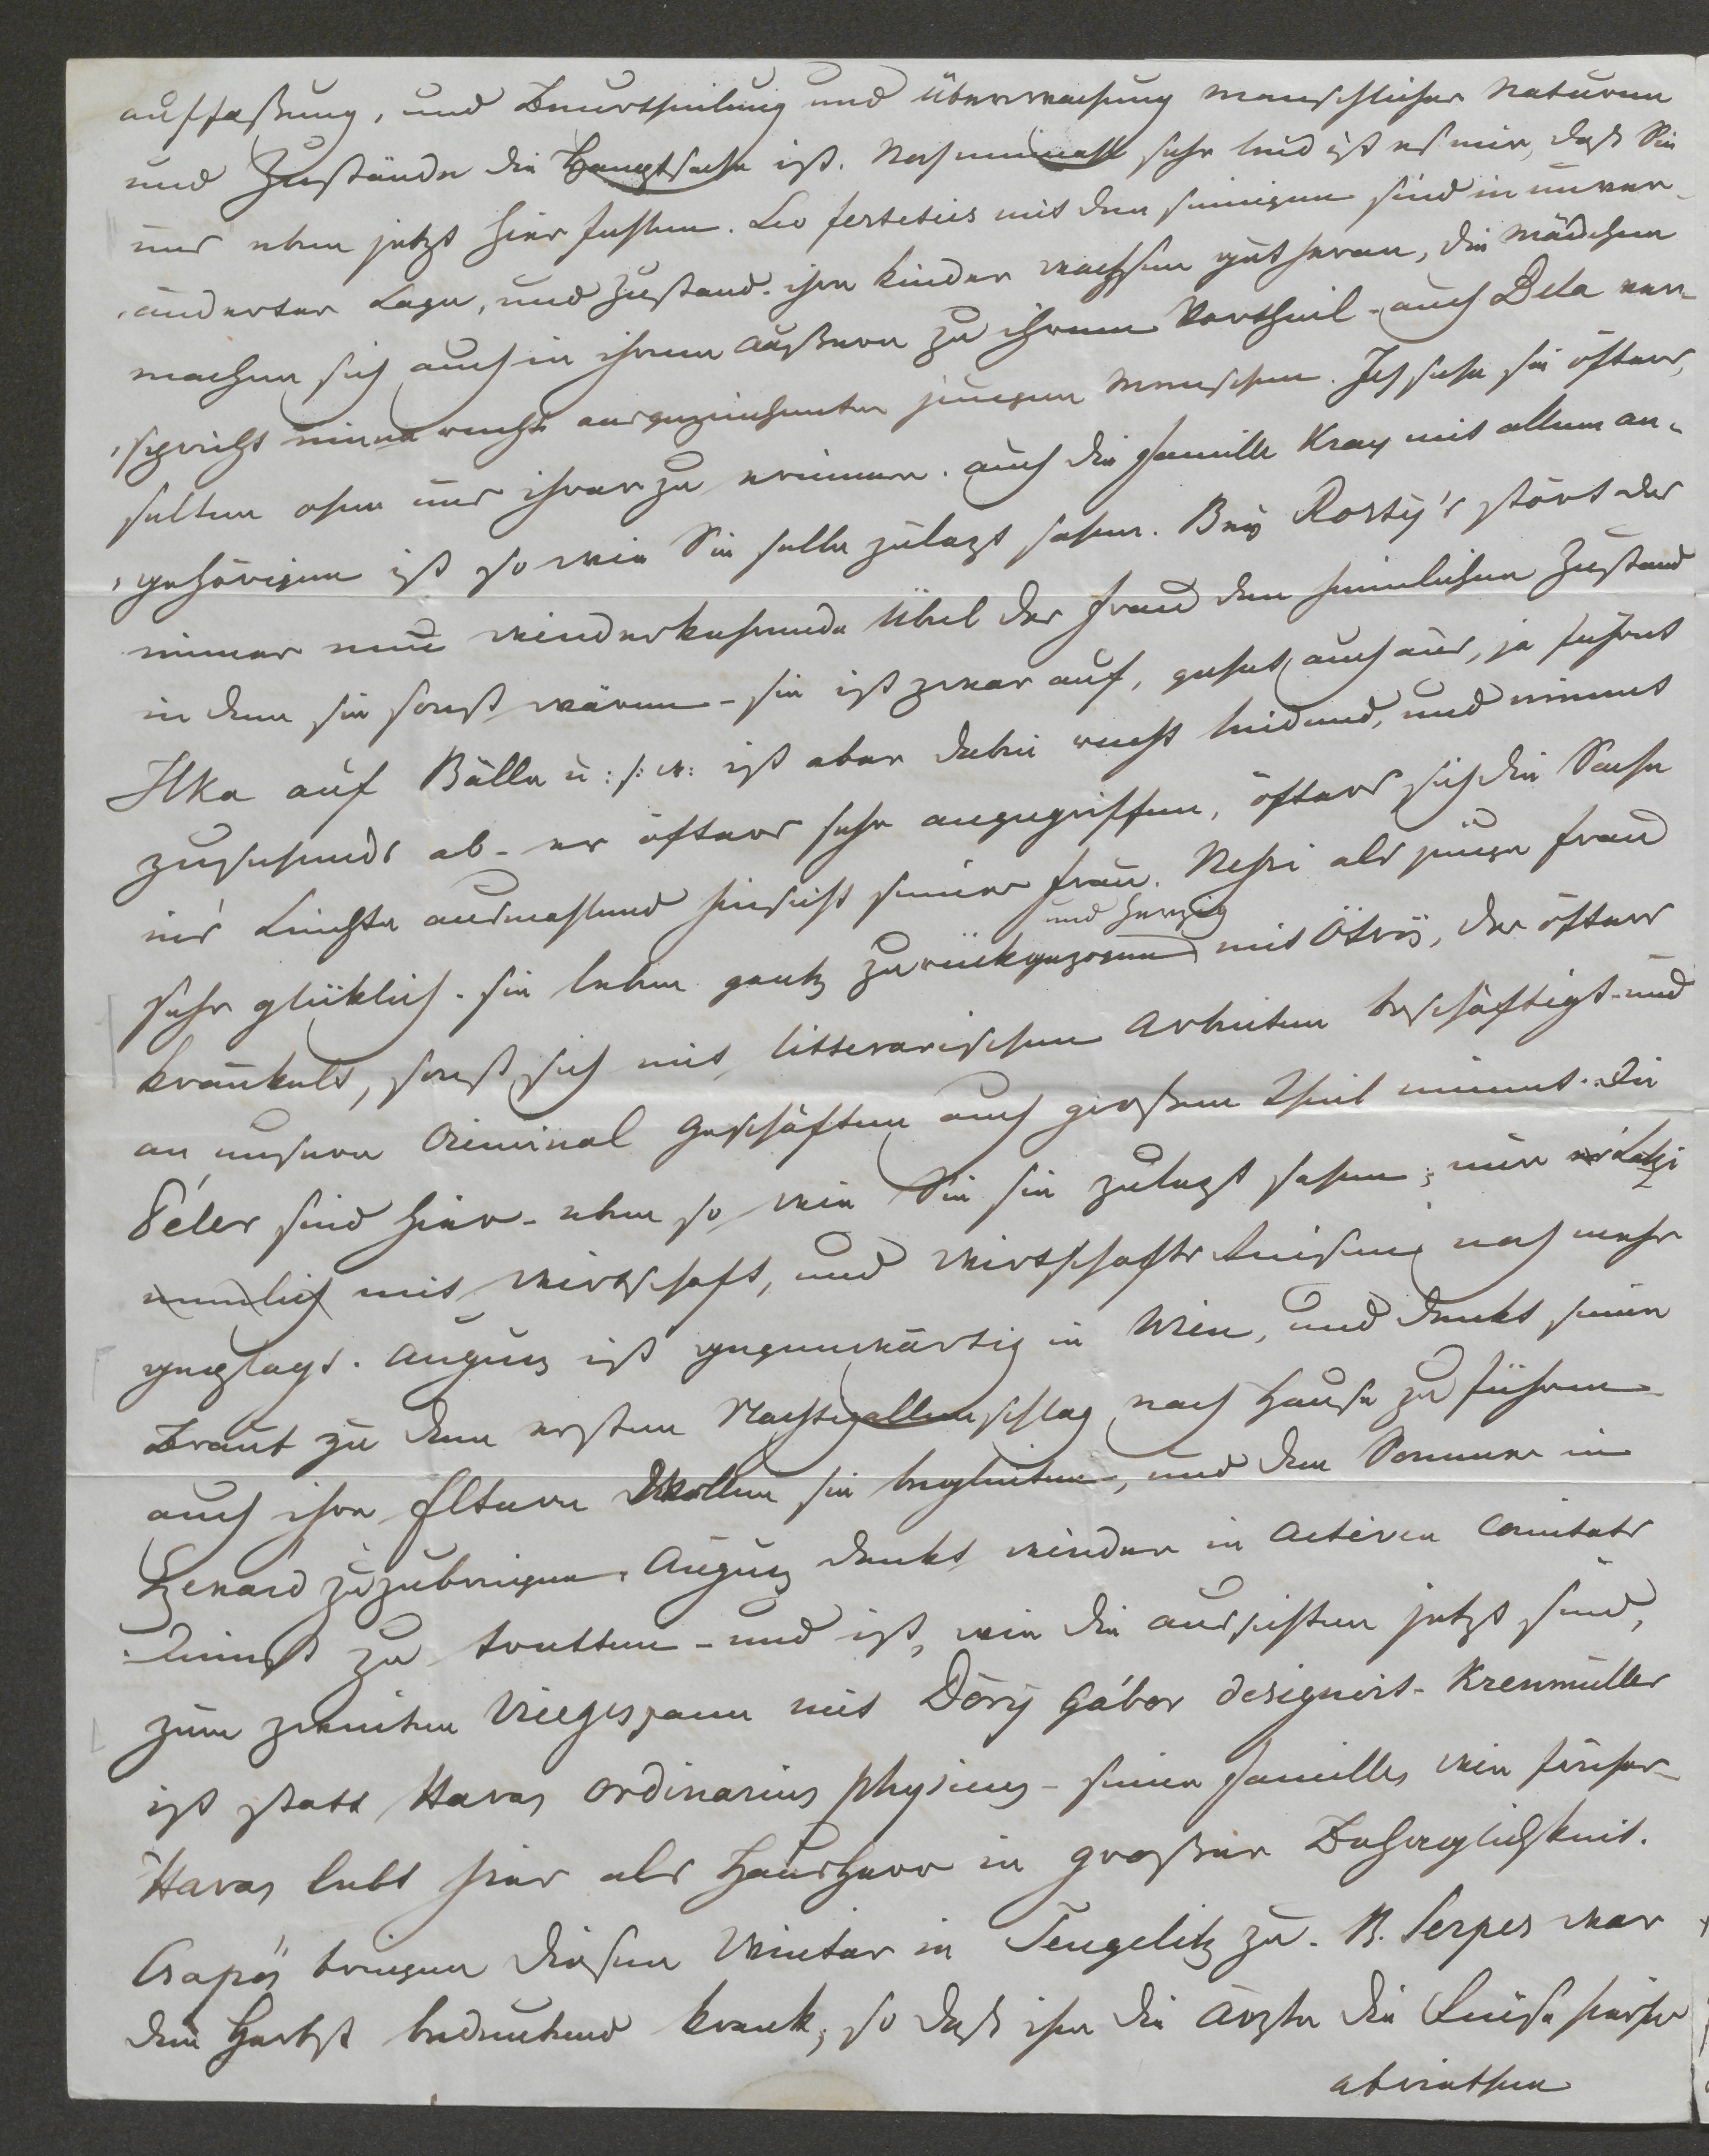 auffaßung, und Beurtheilung und Überwachung menschlicher Naturen
und Zustände die Hauptsache ist. Nocheinmahl sehr leid ist es mir, daß Sie
uns eben jetzt hier fehlen. Leo festetics mit den seinigen sind in unver-
änderter Lage, und Zustand. ihre Kinder wachsen gut heran, die Mädchen
machen sich auch in ihrem Äußern zu ihrem Vortheil - auch Bela ver-
spricht einen recht ausgezeichneten jungen Menschen. Ich sehe sie öfters,
selten ohne uns ihrer zu erinnern. auch die Familie Kray mit allem an-
gehörigen ist so wie Sie selbe zulezt sahen. Bey Rosty's stört das
immer neu wiederkehrende Übel der Frau den heimlichen Zustand
in dem sie sonst wären - sie ist zwar auf, gehet auch aus, ja führet
Ilka auf Bälle u: s: w: ist aber dabei recht leidend, und nimmt
zusehends ab - er öfters sehr angegriffen, öfters sich die Sache
in's Leichte ausmahlend hinsicht seiner Frau. Resti als junge Frau
sehr glüklich. sie leben gantz zurückgezogen und herzig mit Ötvös, der öfters
kränkelt, sonst sich mit litterarischen Arbeiten beschäftigt - und
an unsern Criminal Geschäften auch großen Theil nimmt. Die
Béler sind hier - eben so wie Sie sie zulezt sahen; nur Latzi
nemlich mit Wirtschaft, und Wirtschafts noch mehr
geplagt. Augusz ist gegenwärtig in Wien, und denkt seine
Braut zu dem ersten Nachtigallenschlag nach Hause zu führen
auch ihre Eltern wollen sie begleiten, und den Sommer in
Szexard zuzubringen. Augusz denkt wieder in activen Comitats
dienst zu tretten - und ist, wie die aussichten jetzt sind,
zum zweiten Vicegespann mit Döry Gábor designirt - Krenmüller
ist statt Havas ordinarius physicus - seine Familie wie früher -
Havas lebt hier als Hausherr in großer Behaglichkeit.
Csapó bringen diesen Winter in Tengelitz zu. B. Serpes war
den Herbst bedeutend krank, so daß ihr die Ärzte die Reise hierher
abriethen